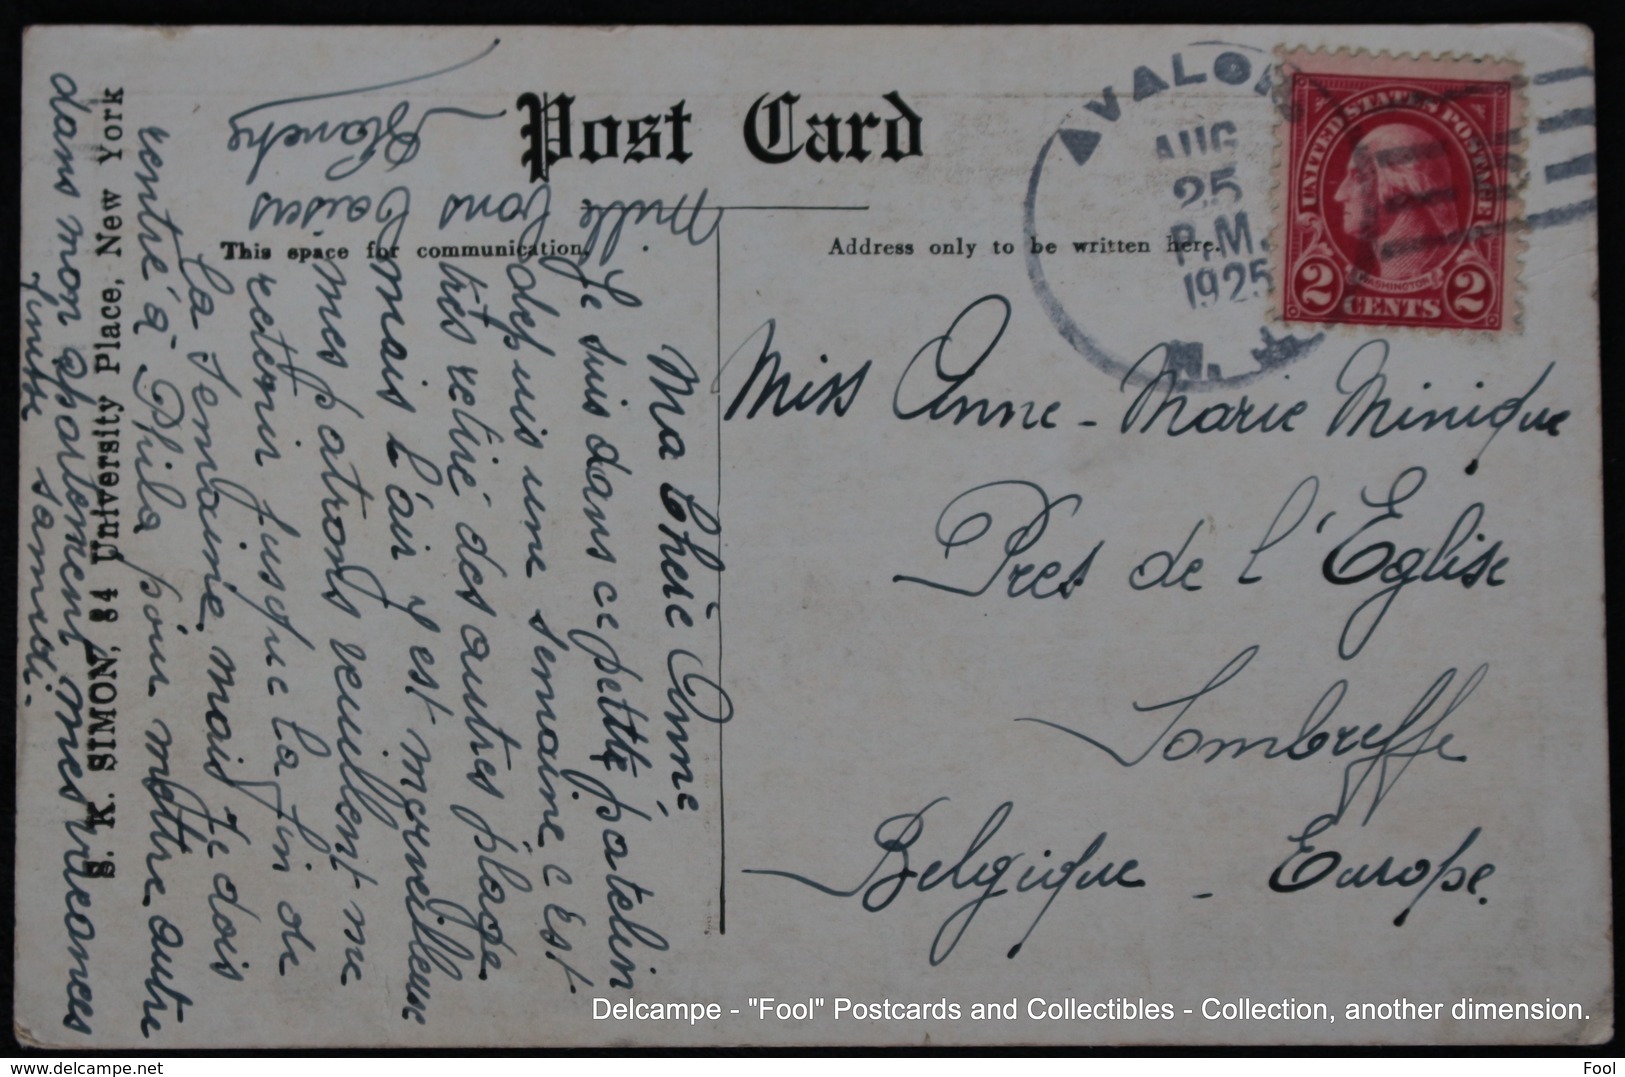 Post Card
This space for communication.
Address only to be written here.
AVALON
AUG
25
P.M.
1925
N. J.
UNITED STATES POSTAGE
WASHINGTON
2 CENTS 2
Miss Anne-Marie Minique
Près de l'Eglise
Sombreffe
Belgique - Europe.
Ma Chère Anne
Je suis dans ce petit patelin
depuis une semaine c'est
très retiré des autres plage
mais l'air y est merveilleux
mes patrons veuillent me
retenir jusque la fin de
la semaine mais je dois
rentré à Phila pour mettre autre
dans mon apartement mes vacances
samedi.
Mille bons baisers
Blanche
S. K. SIMON, 84 University Place, New York
Delcampe - "Fool" Postcards and Collectibles - Collection, another dimension.
www.delcampe.net
Fool